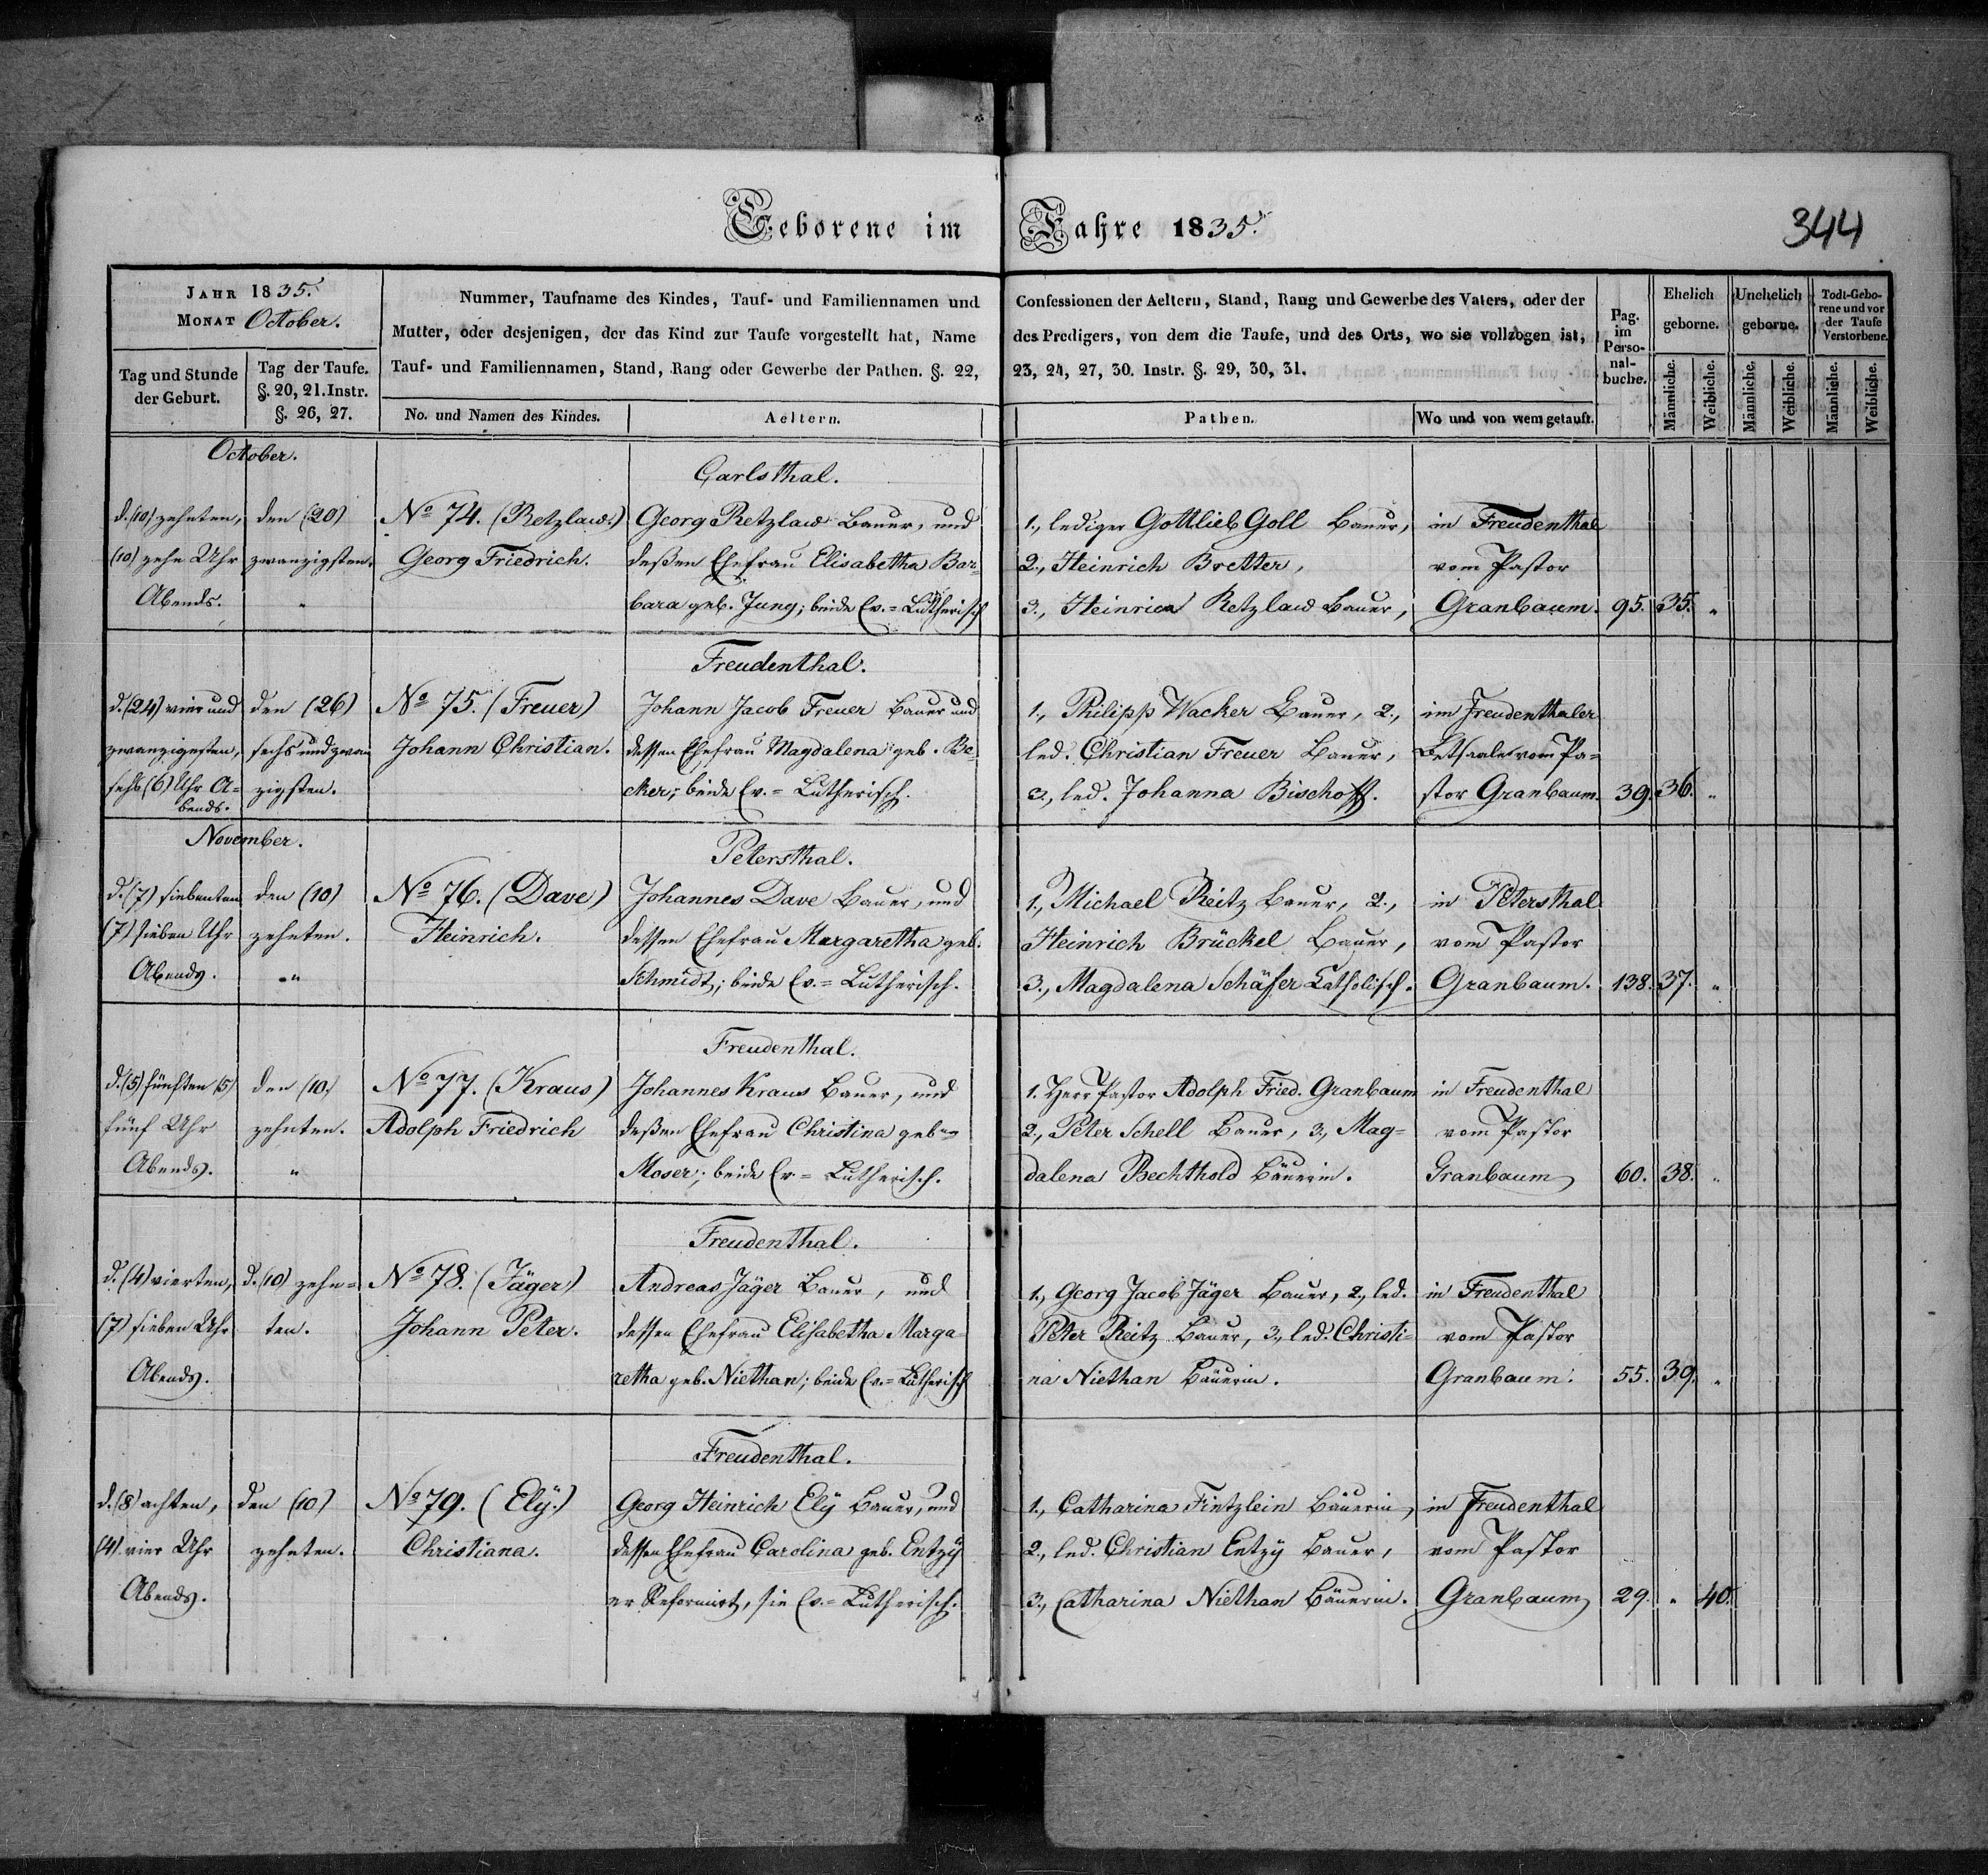 Geborene im Jahre 1835.
344
JAHR 1835.
MONAT October.
Tag und Stunde
der Geburt.
Tag der Taufe.
§. 20, 21. Instr.
§. 26, 27.
Nummer, Taufname des Kindes, Tauf- und Familiennamen und
Mutter, oder desjenigen, der das Kind zur Taufe vorgestellt hat, Name
Tauf- und Familiennamen, Stand, Rang oder Gewerbe der Pathen. §. 22,
No. und Namen des Kindes.
Aeltern.
Confessionen der Aeltern, Stand, Rang und Gewerbe des Vaters, oder der
des Predigers, von dem die Taufe, und des Orts, wo sie vollzogen ist,
23, 24, 27, 30. Instr. §. 29, 30, 31.
Pathen.
Wo und von wem getauft.
Pag.
im
Perso-
nal-
buche.
Ehelich
geborne.
Männliche.
Weibliche.
Unehelich
geborne.
Männliche.
Weibliche.
Todt-Gebo-
rene und vor
der Taufe
Verstorbene.
Männliche.
Weibliche.
October.
d. (10) zehnten,
(10) zehn Uhr
Abends.
den (20)
zwanzigsten.
"
No 74. (Retzlaw.)
Georg Friedrich.
Carlsthal.
Georg Retzlaw Bauer, und
deßen Ehefrau Elisabetha Bar-
bara geb. Jung; beide Ev.= Lutherisch
1., lediger Gottlieb Goll Bauer,
2., Heinrich Bretter,
3., Heinrich Retzlaw Bauer,
in Freudenthal
vom Pastor
Granbaum.
95.
35.
"
d. (24) vier und
zwanzigsten,
sechs (6) Uhr A=
bends.
den (26)
sechs und zwan
zigsten.
No 75. (Freuer)
Johann Christian.
Freudenthal.
Johann Jacob Freuer Bauer und
dessen Ehefrau Magdalena geb. Be-
cker; beide Ev.= Lutherisch.
1., Philipp Wacker Bauer, 2.,
led. Christian Freuer Bauer,
3., led. Johanna Bischoff.
im Freudenthaler
Betsaale vom Pa=
stor Granbaum.
39.
36.
"
November.
d. (7) siebenten
(7) sieben Uhr
Abends.
den (10)
zehnten.
"
No 76. (Dave)
Heinrich.
Petersthal.
Johannes Dave Bauer, und
dessen Ehefrau Margaretha geb.
Schmidt; beide Ev.= Lutherisch.
1., Michael Reitz Bauer, 2.,
Heinrich Brückel Bauer,
3., Magdalena Schäfer Catholisch.
in Petersthal
vom Pastor
Granbaum.
138.
37.
"
d. (5) fünften (5)
fünf Uhr
Abends.
den (10.)
zehnten.
"
No 77. (Kraus)
Adolph Friedrich
Freudenthal.
Johannes Kraus Bauer, und
deßen Ehefrau Christina geb.
Moser; beide Ev= Lutherisch.
1. Herr Pastor Adolph Fried. Granbaum
2., Peter Schell Bauer, 3., Mag=
dalena Bechthold Bäuerin.
in Freudenthal
vom Pastor
Granbaum
60.
38.
"
d. (4) vierten,
(7) sieben Uhr
Abends.
d. (10) zehn=
ten.
No 78. (Jäger)
Johann Peter.
Freudenthal.
Andreas Jäger Bauer, und
dessen Ehefrau Elisabetha Marga-
retha geb. Niethan; beide Ev.= Lutherisch
1., Georg Jacob Jäger Bauer, 2., led.
Peter Reitz Bauer, 3., led. Christi=
na Niethan Bäuerin.
in Freudenthal
vom Pastor
Granbaum.
55.
39.
"
d. (8) achten,
(4) vier Uhr
Abends.
den (10)
zehnten.
No 79. (Elÿ.)
Christiana.
Freudenthal.
Georg Heinrich Elÿ Bauer, und
dessen Ehefrau Carolina geb. Entzÿ
er Reformirt, sie Ev.= Lutherisch.
1., Catharina Fintzlein Bäuerin,
2., led. Christian Entzÿ Bauer,
3., Catharina Niethan Bäuerin.
in Freudenthal
vom Pastor
Granbaum
29.
"
40.